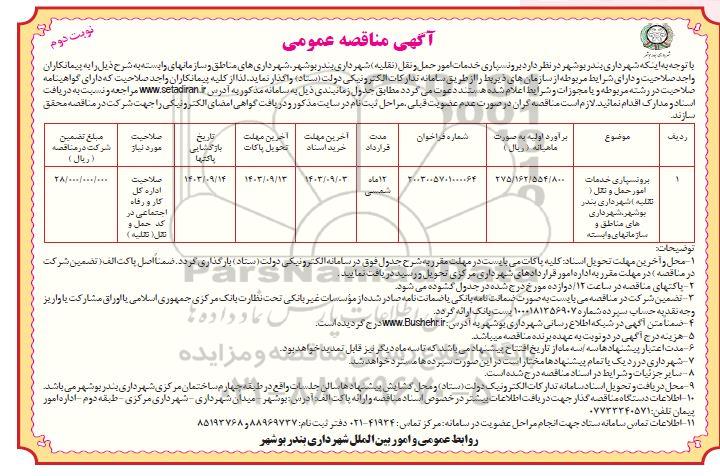 آگهی مناقصه عمومی
نوبت دوم
با توجه به اینکه شهرداری بندر بوشهر در نظر دارد برونسپاری خدمات امور حمل و نقل (نقلیه) شهرداری بندر بوشهر، شهرداری های مناطق و سازمانهای وابسته به شرح ذیل را به پیمانکاران
واجد صلاحیت و دارای شرایط مربوطه از سازمان های ذیربط را از طریق سامانه تدارکات الکترونیکی دولت (ستاد) واگذار نماید. لذا از کلیه پیمانکاران واجد صلاحیت که دارای گواهینامه
صلاحیت در رشته مربوطه و یا مجوزات و شرایط اعلام شده هستند دعوت می گردد مطابق جدول زمانبندی ذیل به سامانه مذکور به آدرس www.setadiran.ir مراجعه و نسبت به دریافت
اسناد و مدارک اقدام نمائید. لازم است مناقصه گران در صورت عدم عضویت قبلی، مراحل ثبت نام در سایت مذکور و دریافت گواهی امضای الکترونیکی را جهت شرکت در مناقصه محقق
سازند.
ردیف
موضوع
برآورد اولیه به صورت ماهیانه (ریال)
شماره فراخوان
مدت قرارداد
آخرین مهلت خرید اسناد
آخرین مهلت تحویل پاکات
تاریخ بازگشایی پاکتها
صلاحیت مورد نیاز
مبلغ تضمین شرکت در مناقصه (ریال)
۱
برونسپاری خدمات امور حمل و نقل (نقلیه) شهرداری بندر بوشهر، شهرداری های مناطق و سازمانهای وابسته
۲۷۵/۱۶۲/۵۵۴/۸۰۰
۲۰۰۳۰۰۵۷۰۱۰۰۰۰۶۴
۱۲ ماه شمسی
۱۴۰۳/۰۹/۰۳
۱۴۰۳/۰۹/۱۳
۱۴۰۳/۰۹/۱۴
صلاحیت اداره کل کار و رفاه اجتماعی در کد حمل و نقل (نقلیه)
۲۸/۰۰۰/۰۰۰/۰۰۰
توضیحات:
۱- محل و آخرین مهلت تحویل اسناد: کلیه پاکات می بایست در مهلت مقرر به شرح جدول فوق در سامانه الکترونیکی دولت (ستاد) بارگذاری گردد. ضمناً اصل پاکت الف (تضمین شرکت
در مناقصه) در مهلت مقرر به اداره امور قراردادهای شهرداری مرکزی تحویل و رسید دریافت نمایید.
۲- پاکتهای مناقصه در ساعت ۱۲/دوازده مورخ درج شده در جدول گشوده می شود.
۳- تضمین شرکت در مناقصه می بایست به صورت ضمانت نامه بانکی یا ضمانت نامه صادر شده از مؤسسات غیر بانکی تحت نظارت بانک مرکزی جمهوری اسلامی یا اوراق مشارکت یا واریز
وجه نقد به حساب سپرده شماره ۱۰۰۰۱۸۱۳۵۶۹۰۷ پست بانک ارائه گردد.
۴- ضمنا متن آگهی در شبکه اطلاع رسانی شهرداری بوشهر به آدرس: www.Bushehr.ir درج گردیده است.
۵- هزینه درج آگهی در دو نوبت به عهده برنده مناقصه میباشد.
۶- مدت اعتبار پیشنهادها سه/سه ماه از تاریخ افتتاح پیشنهاد می باشد که تا سه ماه دیگر نیز قابل تمدید خواهد بود.
۷- شهرداری در رد یک یا تمام پیشنهادها مختار است در این صورت سپرده ها مسترد خواهد شد.
۸- سایر جزئیات و شرایط در اسناد مناقصه درج شده است.
۹- محل دریافت و تحویل اسناد سامانه تدارکات الکترونیک دولت (ستاد) و محل گشایش پیشنهادها سالن جلسات واقع در طبقه چهارم ساختمان مرکزی شهرداری بندر بوشهر می باشد.
۱۰- اطلاعات دستگاه مناقصه گذار جهت دریافت اطلاعات بیشتر در خصوص اسناد مناقصه و ارائه پاکت الف: آدرس: بوشهر - میدان شهرداری - شهرداری مرکزی - طبقه دوم - اداره امور
پیمان تلفن: ۰۷۷۳۳۳۴۰۵۷۱
۱۱- اطلاعات تماس سامانه ستاد جهت انجام مراحل عضویت در سامانه: مرکز تماس: ۴۱۹۳۴-۰۲۱ دفتر ثبت نام: ۸۸۹۶۹۷۳۷ و ۸۵۱۹۳۷۶۸
روابط عمومی و امور بین الملل شهرداری بندر بوشهر